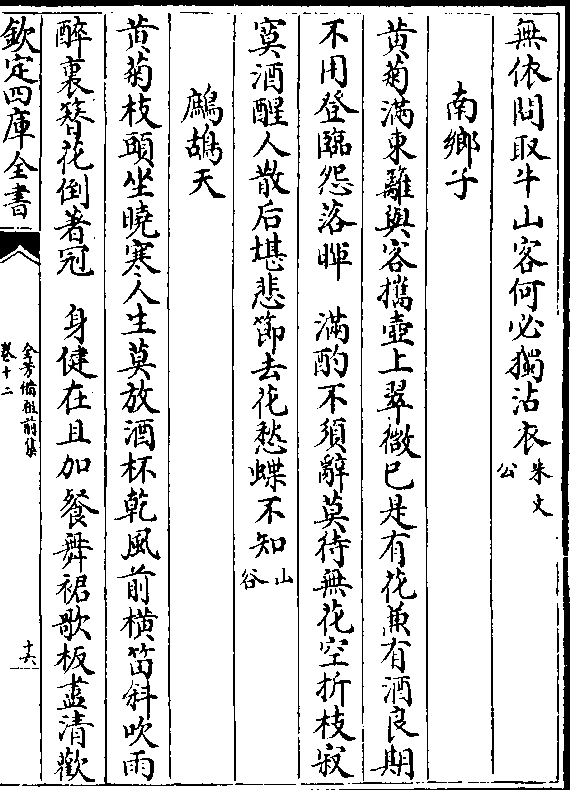 無依問取牛山客何必獨沾衣朱文公
南鄉子
黄菊滿東籬與客攜壺上翠微已是有花兼有酒良期
不用登臨怨落暉　滿酌不須辭莫待無花空折枝寂
寞酒醒人散后堪悲節去花愁蝶不知山谷
鷓鴣天
黄菊枝頭坐曉寒人生莫放酒杯乾風前橫笛斜吹雨
醉裏簪花倒著冠　身健在且加餐舞裙歌板盡清歡
欽定四庫全書
全芳備祖前集
卷十二
十六